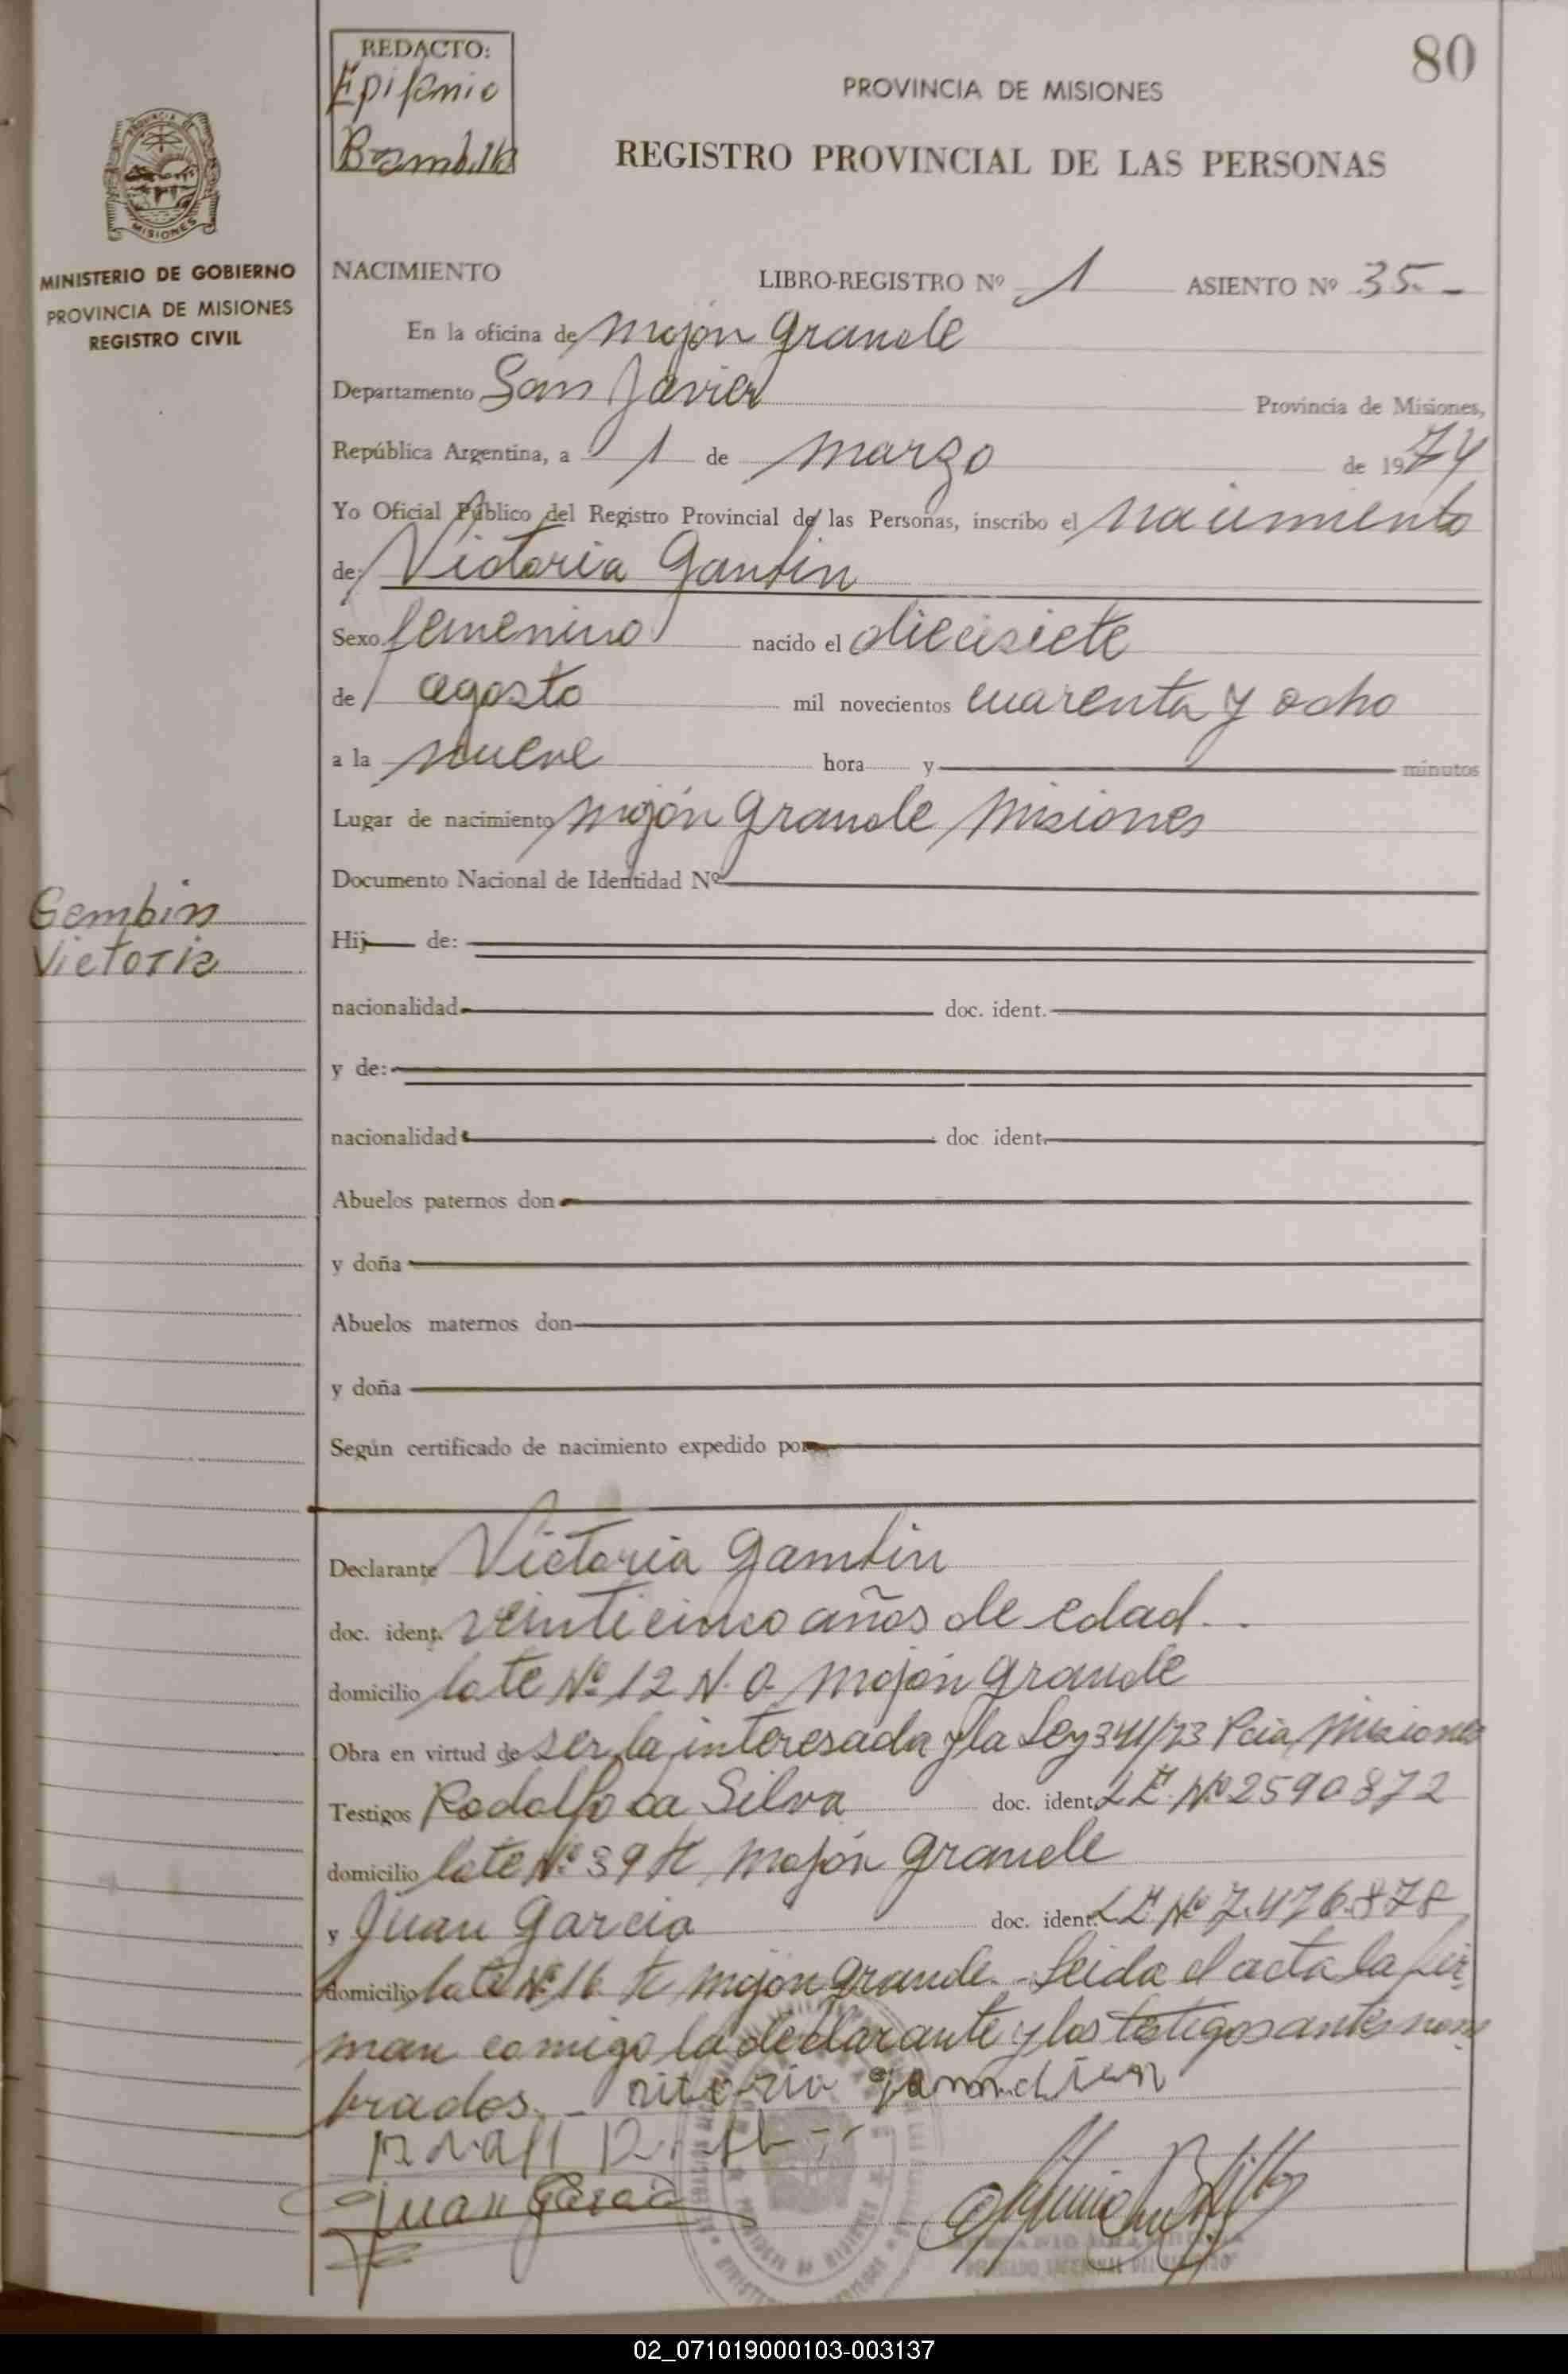 80
REDACTO:
Epifanio
PROVINCIA DE MISIONES
REGISTRO PROVINCIAL DE LAS PERSONAS
MISIONES
MINISTERIO DE GOBIERNO
PROVINCIA DE MISIONES
REGISTRO CIVIL
NACIMIENTO LIBRO-REGISTRO Nº 1 ASIENTO Nº 35.-
En la oficina de Mojón Grande
Departamento San Javier Provincia de Misiones,
República Argentina, a 1 de marzo de 1974
Yo Oficial Público del Registro Provincial de las Personas, inscribo el nacimiento
de: Victoria
Sexo femenino nacido el diecisiete
de agosto mil novecientos cuarenta y ocho
a la nueve hora y minutos
Lugar de nacimiento Mojón Grande Misiones
Documento Nacional de Identidad Nº
Victoria
Hij de:
nacionalidad doc. ident.
y de:
nacionalidad doc. ident.
Abuelos paternos don
y doña
Abuelos maternos don
y doña
Según certificado de nacimiento expedido por
Declarante Victoria
doc. ident. veinticinco años de edad.
domicilio lote Nº 12 N.O. Mojón Grande
Obra en virtud de ser la interesada y la Ley 341/73 Pcia Misiones
Testigos Rodolfo da Silva doc. ident. L E Nº 2590872
domicilio lote Nº 39 Mojón Grande
y Juan Garcia doc. ident. L E Nº 7.476.878
domicilio lote Nº 16 Mojón Grande.- Leida el acta la fir-
man comigo la declarante y los testigos antes nom-
brados.-
Juan Garcia
02_071019000103-003137